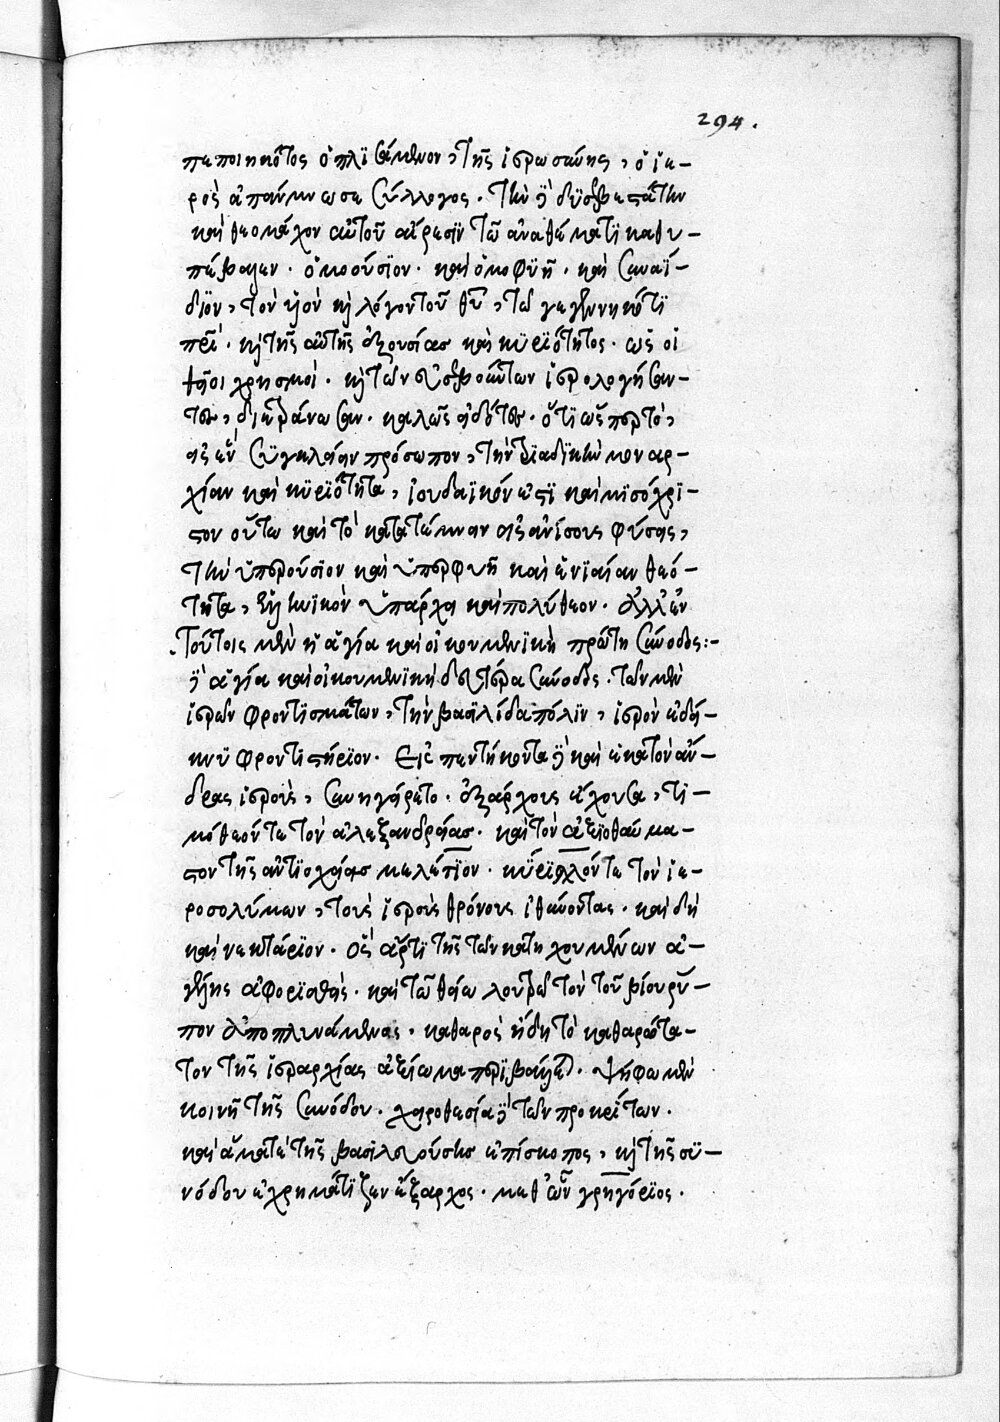 294.
πεποιηκότος ὁπλισάμενον, τῆς ἱερωσύνης, ὁ ἱε-
ρὸς ἀπαύγασε σύλλογος. τὴν δὲ δυσσεβεστάτην
καὶ θεομάχον αὐτοῦ αἵρεσιν τῷ ἀναθέματι καθυ-
πέβαλεν. ὁμοούσιον. καὶ ὁμοφυῆ. καὶ συναΐ-
διον, τὸν υἱὸν κ(αὶ) λόγον τοῦ θῦ, τῷ γεγεννηκότι
πρι. κ(αὶ) τῆς αὐτῆς ἐξουσίας καὶ κυριότητος. ὡς οἱ
θεῖοι χρησμοὶ. κ(αὶ) τῶν εὐσεβούντων ἱερολογήσαν-
τες, διετράνωσαν. καλῶς εἰδότες. ὅτι ὥσπερ τὸ,
εἰς ἓν συγκλείειν πρόσωπον, τὴν τριαδικὴν μοναρ-
χίαν καὶ κυριότητα, ἰουδαϊκόν ἐστι καὶ μισόχρι-
στον οὕτω καὶ τὸ κατατέμνειν εἰς ἀνίσους φύσεις,
τὴν ὑπερούσιον καὶ ὑπερφυῆ καὶ ἑνιαίαν θεό-
τητα, ἑλληνικὸν ὑπάρχει καὶ πολύθεον. ἀλλ' ἐν
τούτοις μὲν ἡ ἁγία καὶ οἰκουμενικὴ πρώτη σύνοδος:-
ἡ δὲ ἁγία καὶ οἰκουμενικὴ δευτέρα σύνοδος. τῶν μὲν
ἱερῶν φροντισμάτων, τὴν βασιλίδα πόλιν, ἱερὸν ἐδεί-
κνυ φροντιστήριον. εἰς πεντήκοντα δὲ καὶ ἑκατὸν ἄν-
δρας ἱεροὺς, συνηγείρετο. ἐξάρχους ἔχουσα, τι-
μόθεόν τε τὸν ἀλεξανδρείας. καὶ τὸν ἀξιοθαύμα-
στον τῆς ἀντιοχείας μελέτιον. κύριλλόν τε τὸν ἱε-
ροσολύμων, τοὺς ἱεροὺς θρόνους ἰθύνοντας. καὶ δὴ
καὶ νεκτάριον. ὃς ἄρτι τῆς τῶν κατηχουμένων ἀ-
γέλης ἀφορισθεὶς. καὶ τῷ θείῳ λουτρῷ τὸν τοῦ βίου ρύ-
πον ἀποπλυνάμενος. καθαρὸς ἤδη τὸ καθαρώτα-
τον τῆς ἱεραρχίας ἀξίωμα περιβάλλετ(αι). ψήφῳ μὲν
κοινῇ τῆς συνόδου. χειροθεσίᾳ δὲ τῶν προκρίτων.
καὶ ἅμα τε τῆς βασιλευούσης ἐπίσκοπος, κ(αὶ) τῆς συ-
νόδου ἐχρημάτιζεν ἔξαρχος. μεθ' ὧν γρηγόριος.